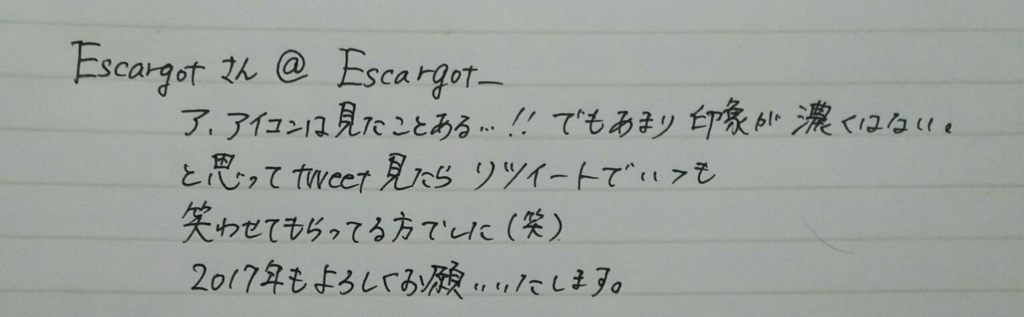 Escargotさん@ Escargot_
ア、アイコンは見たことある…!! でもあまり印象が濃くはない。
と思ってtweet見たらリツイートでいつも
笑わせてもらってる方でした(笑)
2017年もよろしくお願いいたします。